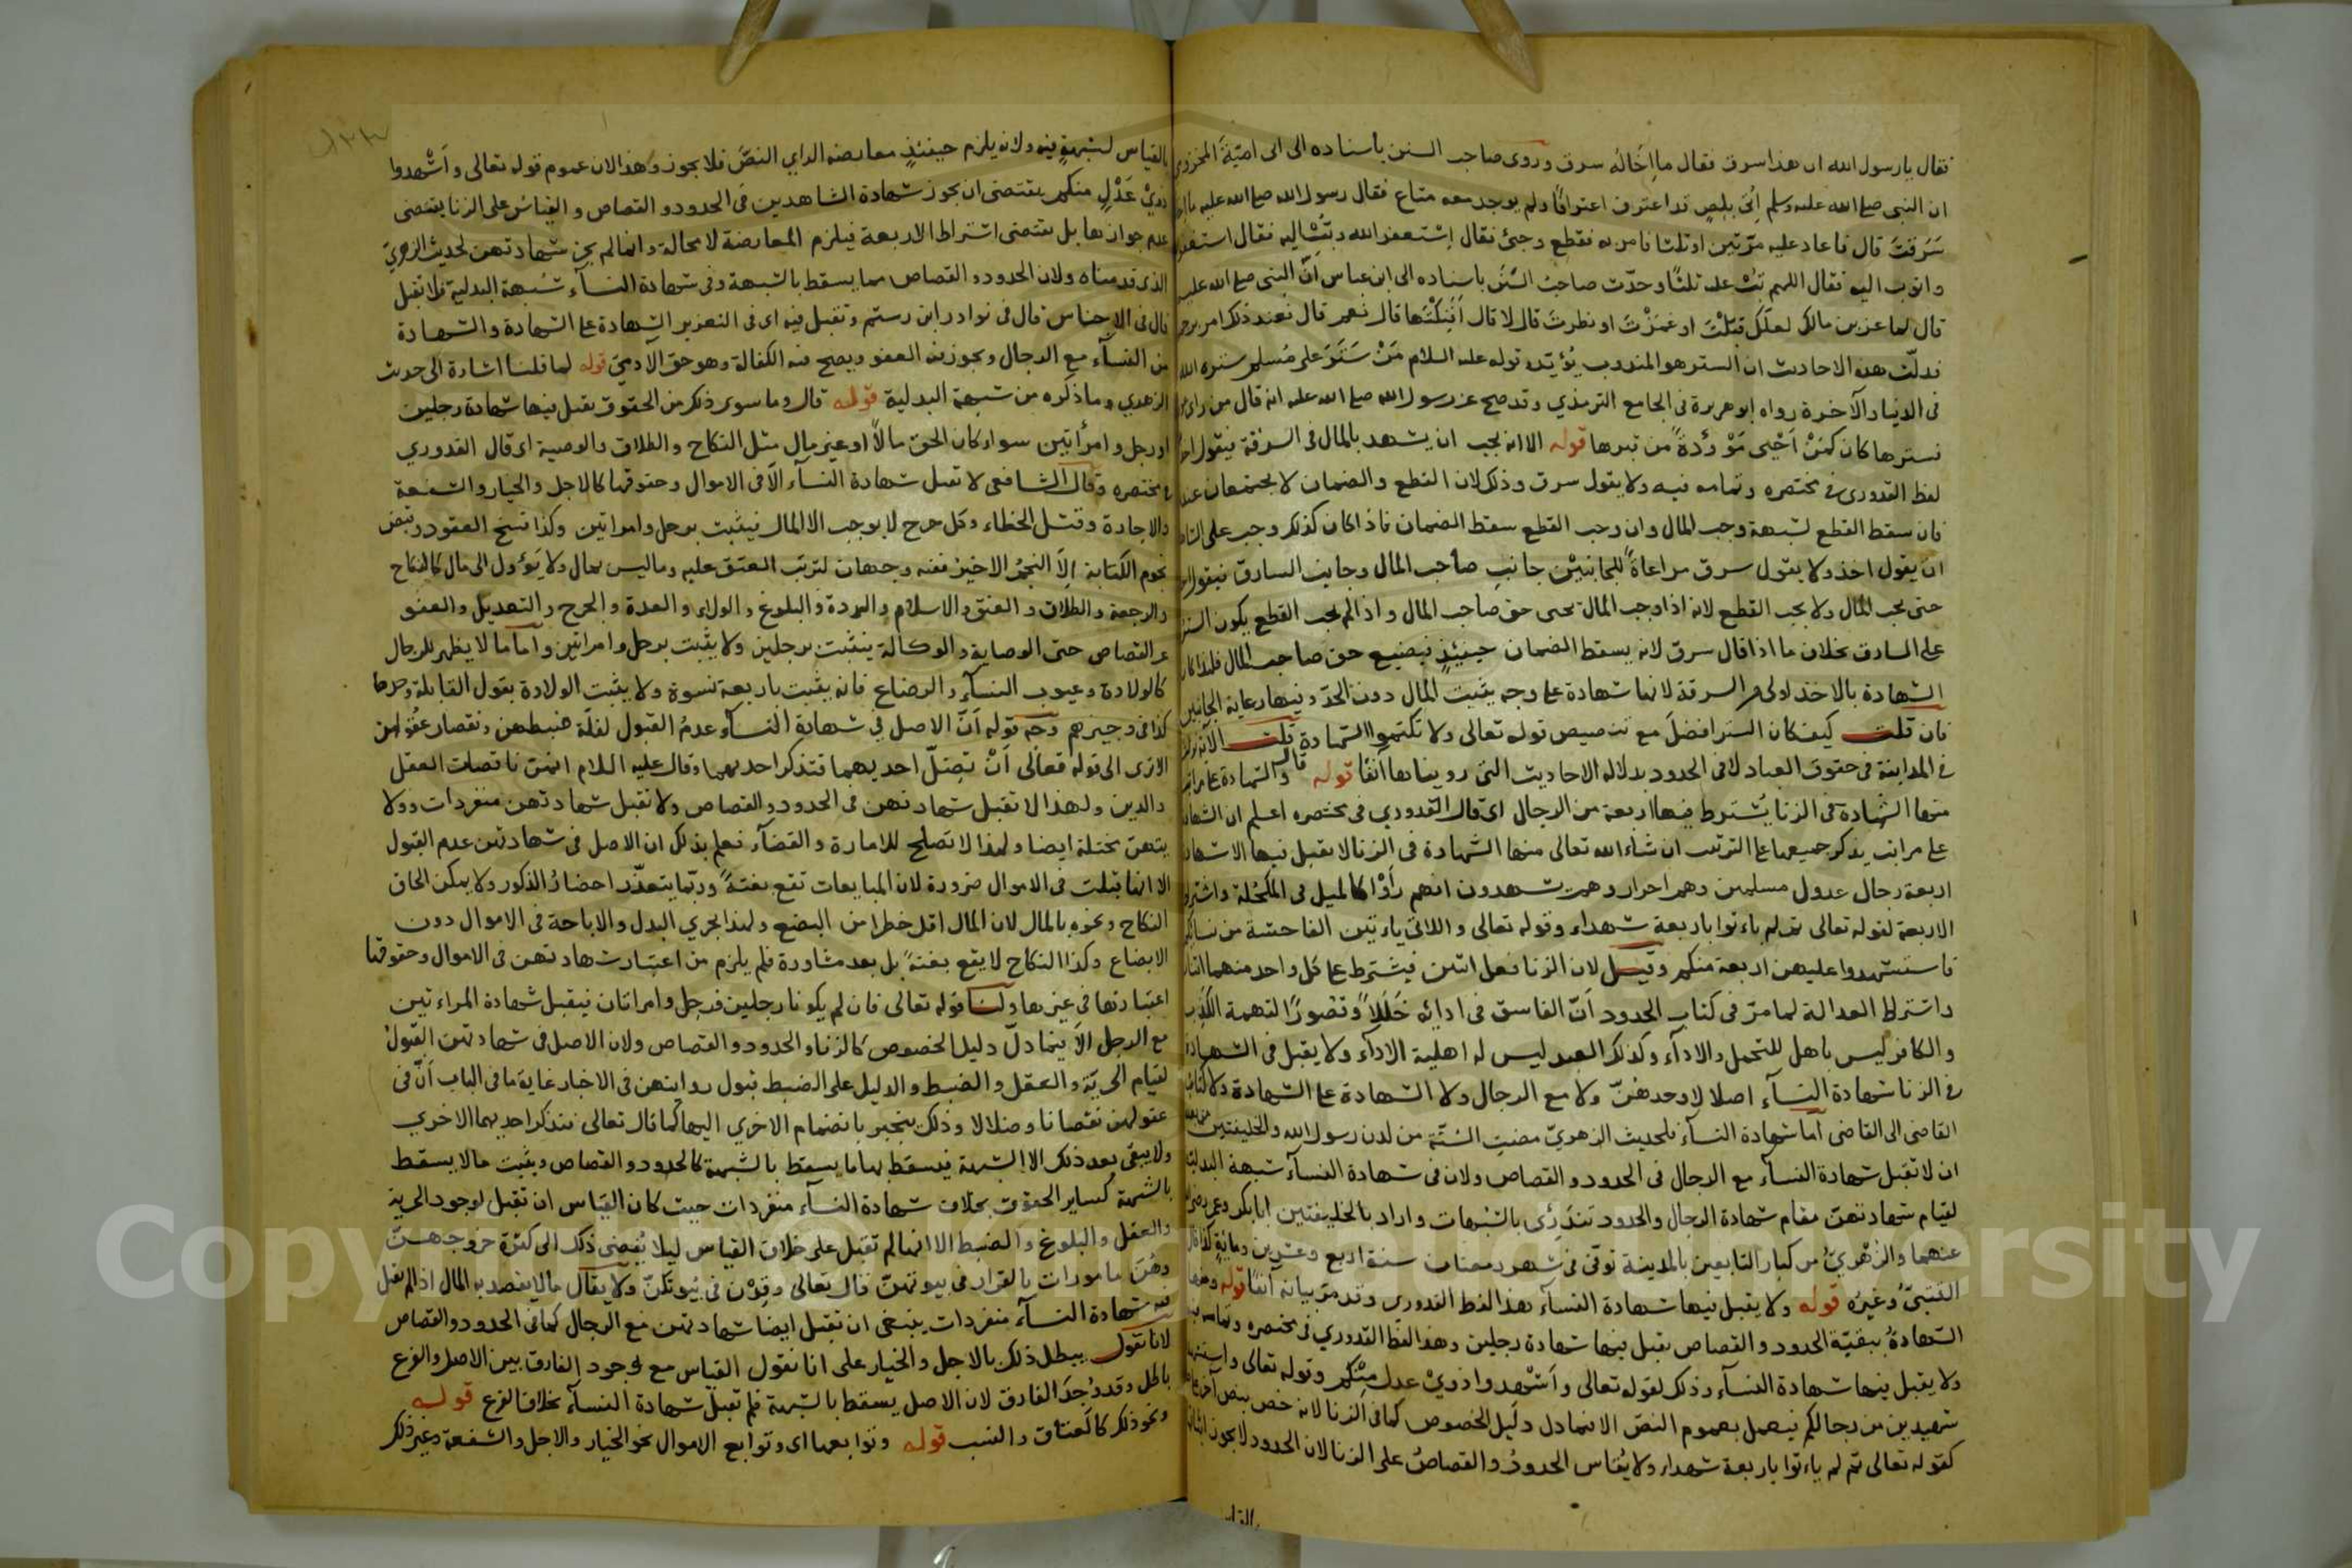 فقال يا رسول الله ان هذا سرق فقال ما اخاله سرق وروى صاحب السنن باسناده الى ابى امية المخزومى
ان النبى صلى الله عليه وسلم اتى بلص قد اعترف اعترافا ولم يوجد معه متاع فقال رسول الله صلى الله عليه ما اخا
سرقت قال فاعاد عليه مرتين او ثلثا فامر به فقطع وجئ فقال استغفر الله وتب اليه فقال استغفر
واتوب اليه فقال اللهم تب عليه ثلثا وحدث صاحب السنن باسناده الى ابن عباس ان النبى صلى الله عليه
قال لماعز بن مالك لعلك قبلت او غمزت او نظرت قال لا قال افنكتها قال نعم قال فعند ذلك امر برجم
فدلت هذه الاحاديث ان الستر هو المندوب يؤيده قوله عليه السلام من ستر على مسلم ستره الله
فى الدنيا والآخرة رواه ابو هريرة فى الجامع الترمذي وقد صح عن رسول الله صلى الله عليه انه قال من راى
فسترها كان كمن احيى موؤدة من قبرها قوله الا انه يجب ان يشهد بالمال فى السرقة فيقول اخذ
لفظ القدورى فى مختصره وتمامه فيه ولا يقول سرق وذلك لان القطع والضمان لا يجتمعان عندنا
فان سقط القطع لشبهة وجب المال وان وجب القطع سقط الضمان فاذا كان كذلك وجب على الشا
ان يقول اخذ ولا يقول سرق مراعاة للجانبين جانب صاحب المال وجانب السارق فيقول اخذ
حتى يجب المال ولا يجب القطع لانه اذا وجب المال يحيى حق صاحب المال واذا لم يجب القطع يكون الستر
على السارق بخلاف ما اذا قال سرق لانه يسقط الضمان حينئذ فيضيع حق صاحب المال فلهذا كان
الشهادة بالاخذ اولى من السرقة لانها شهادة على وجه يثبت المال دون الحد وفيها رعاية الجانبين
فان قلت كيف كان الستر افضل مع تنصيص قوله تعالى ولا تكتموا الشهادة قلت الآية نزلت
فى المداينة فى حقوق العباد لا فى الحدود بدلالة الاحاديث التى رويناها آنفا قوله قال والشهادة على مراتب
منها الشهادة فى الزنا يشترط فيها اربعة من الرجال اى قال القدوري فى مختصره اعلم ان الشهادة
على مراتب يذكر جميعها على الترتيب ان شاء الله تعالى منها الشهادة فى الزنا لا يقبل فيها الا شهادة
اربعة رجال عدول مسلمين وهم احرار وهم يشهدون انهم راوا كالميل فى المكحلة واشترط
الاربعة لقوله تعالى ثم لم ياءتوا باربعة شهداء وقوله تعالى واللاتى ياءتين الفاحشة من نسائكم
فاستشهدوا عليهن اربعة منكم وقيل لان الزنا فعل اثنين فيشترط على كل واحد منهما اثنان
واشتراط العدالة لما مر فى كتاب الحدود ان الفاسق فى ادائه خللا وقصورا لتهمة الكذب
والكافر ليس باهل للتحمل والاداء وكذلك العبد ليس له اهلية الاداء ولا يقبل فى الشهادة
فى الزنا شهادة النسآء اصلا لا وحدهن ولا مع الرجال ولا الشهادة على الشهادة ولا كتاب
القاضى الى القاضى اما شهادة النسآء فلحديث الزهري مضت السنة من لدن رسول الله والخليفتين من بعده
ان لا تقبل شهادة النسآء مع الرجال فى الحدود والقصاص ولان فى شهادة النسآء شبهة البدلية
لقيام شهادتهن مقام شهادة الرجال والحدود تندرئ بالشبهات واراد بالخليفتين ابا بكر وعمر رضى الله
عنهما والزهري من كبار التابعين بالمدينة توفى فى شهر رمضان سنة اربع وعشرين ومائة كذا قال
القتبي وغيره قوله ولا يقبل فيها شهادة النسآء هذا لفظ القدورى وقد مر بيانه آنفا قوله ومنها
الشهادة ببقية الحدود والقصاص يقبل فيها شهادة رجلين وهذا لفظ القدوري فى مختصره وتمامه فيه
ولا يقبل فيها شهادة النسآء وذلك لقوله تعالى واشهدوا ذوي عدل منكم وقوله تعالى واستشهدوا
شهيدين من رجالكم فيعمل بعموم النص الا فيما دل دليل الخصوص كما فى الزنا لانه خص بنص آخر
كقوله تعالى ثم لم ياءتوا باربعة شهداء ولا يقاس الحدود والقصاص على الزنا لان الحدود لا يجوز اثباتها
بالقياس
بالقياس لشبهة فيه ولانه يلزم حينئذ معارضة الراي النص فلا يجوز وهذا لان عموم قوله تعالى واشهدوا
ذوي عدل منكم يقتضى ان يجوز شهادة الشاهدين فى الحدود والقصاص والقياس على الزنا يقتضى
عدم جوازها بل يقتضى اشتراط الاربعة فيلزم المعارضة لا محالة وانما لم يجز شهادتهن لحديث الزهري
الذى قدمناه ولان الحدود والقصاص مما يسقط بالشبهة وفى شهادة النسآء شبهة البدلية فلا تقبل
قال فى الاجناس قال فى نوادر ابن رستم وتقبل فيه اى فى التعزير الشهادة على الشهادة والشهادة
من النسآء مع الرجال ويجوز فيه العفو ويصح فيه الكفالة وهو حق الآدمي قوله لما قلنا اشارة الى حديث
الزهري وما ذكره من شبهة البدلية قوله قال وما سوى ذلك من الحقوق يقبل فيها شهادة رجلين
او رجل وامرأتين سواء كان الحق مالا او غير مال مثل النكاح والطلاق والوصية اى قال القدوري
فى مختصره وقال الشافعى لا تقبل شهادة النسآء الا فى الاموال وحقوقها كالاجل والخيار والشفعة
والاجارة وقتل الخطاء وكل جرح لا يوجب الا المال فيثبت برجل وامراتين وكذا فسخ العقود وقبض
نجوم الكتابة الا النجم الاخير ففيه وجهان لترتب العتق عليه وما ليس بمال ولا يؤول الى مال كالنكاح
والرجعة والطلاق والعتق والاسلام والردة والبلوغ والولاء والعدة والجرح والتعديل والعفو
عن القصاص حتى الوصاية والوكالة يثبت برجلين ولا يثبت برجل وامراتين واما ما لا يظهر للرجال
كالولادة وعيوب النسآء والرضاع فانه يثبت باربعة نسوة ولا يثبت الولادة بقول القابلة وحدها
كذا فى وجيزهم وجه قوله ان الاصل فى شهادة النسآء عدم القبول لقلة ضبطهن ونقصان عقولهن
الا ترى الى قوله تعالى ان تضل احديهما فتذكر احديهما وقال عليه السلام انهن ناقصات العقل
والدين ولهذا لا تقبل شهادتهن فى الحدود والقصاص ولا تقبل شهادتهن منفردات وولا
يتهن مختلة ايضا ولهذا لا تصلح للامارة والقضآء فعلم بذلك ان الاصل فى شهادتهن عدم القبول
الا انها قبلت فى الاموال ضرورة لان المبايعات تقع بغتة وربما يتعذر احضار الذكور ولا يمكن الحاق
النكاح ونحوه بالمال لان المال اقل خطرا من البضع ولهذا يجري البدل والاباحة فى الاموال دون
الابضاع وكذا النكاح لا يقع بغتة بل بعد مشاورة فلم يلزم من اعتبار شهادتهن فى الاموال وحقوقها
اعتبارتها فى غيرها ولنا قوله تعالى فان لم يكونا رجلين فرجل وامراتان فيقبل شهادة المراءتين
مع الرجل الا فيما دل دليل الخصوص كالزنا والحدود والقصاص ولان الاصل فى شهادتهن القبول
لقيام الحرية والعقل والضبط والدليل على الضبط قبول روايتهن فى الاخبار غاية ما فى الباب ان فى
عقولهن نقصانا وضلالا وذلك ينجبر بانضمام الاخري اليها كما قال تعالى فتذكر احديهما الاخري
ولا يبقى بعد ذلك الا الشبهة فيسقط بها ما يسقط بالشبهة كالحدود والقصاص ويثبت ما لا يسقط
بالشبهة كساير الحقوق بخلاف شهادة النسآء منفردات حيث كان القياس ان تقبل لوجود الحرية
والعقل والبلوغ والضبط الا انها لم تقبل على خلاف القياس ليلا يفضى ذلك الى كثرة خروجهن
وهن مامورات بالقرار فى بيوتهن قال تعالى وقرن فى بيوتكن ولا يقال ما لا يقصد به المال اذا لم يقبل
فيه شهادة النسآء منفردات ينبغى ان تقبل ايضا شهادتهن مع الرجال كما فى الحدود والقصاص
لانا نقول يبطل ذلك بالاجل والخيار على انا نقول القياس مع وجود الفارق بين الاصل والفرع
باطل وقد وجد الفارق لان الاصل يسقط بالشبهة فلم تقبل شهادة النسآء بخلاف الفرع قوله
ونحو ذلك كالعتاق والنسب قوله وتوابعها اى وتوابع الاموال نحو الخيار والاجل والشفعة وغير ذلك